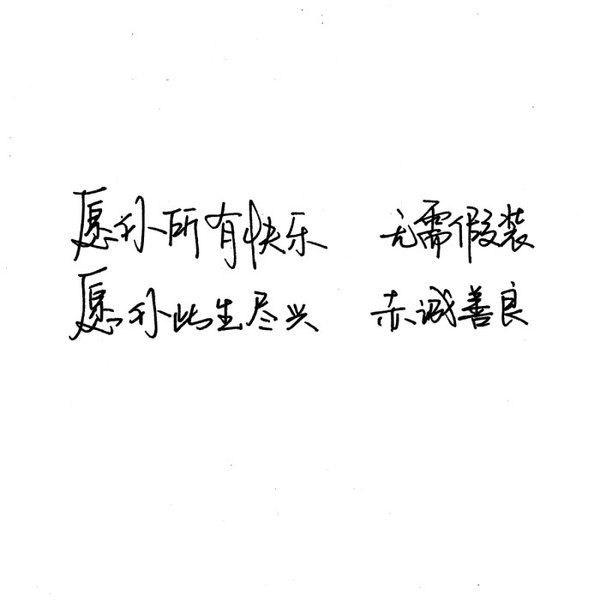 愿你所有快乐 无需假装
愿你此生尽兴 赤诚善良